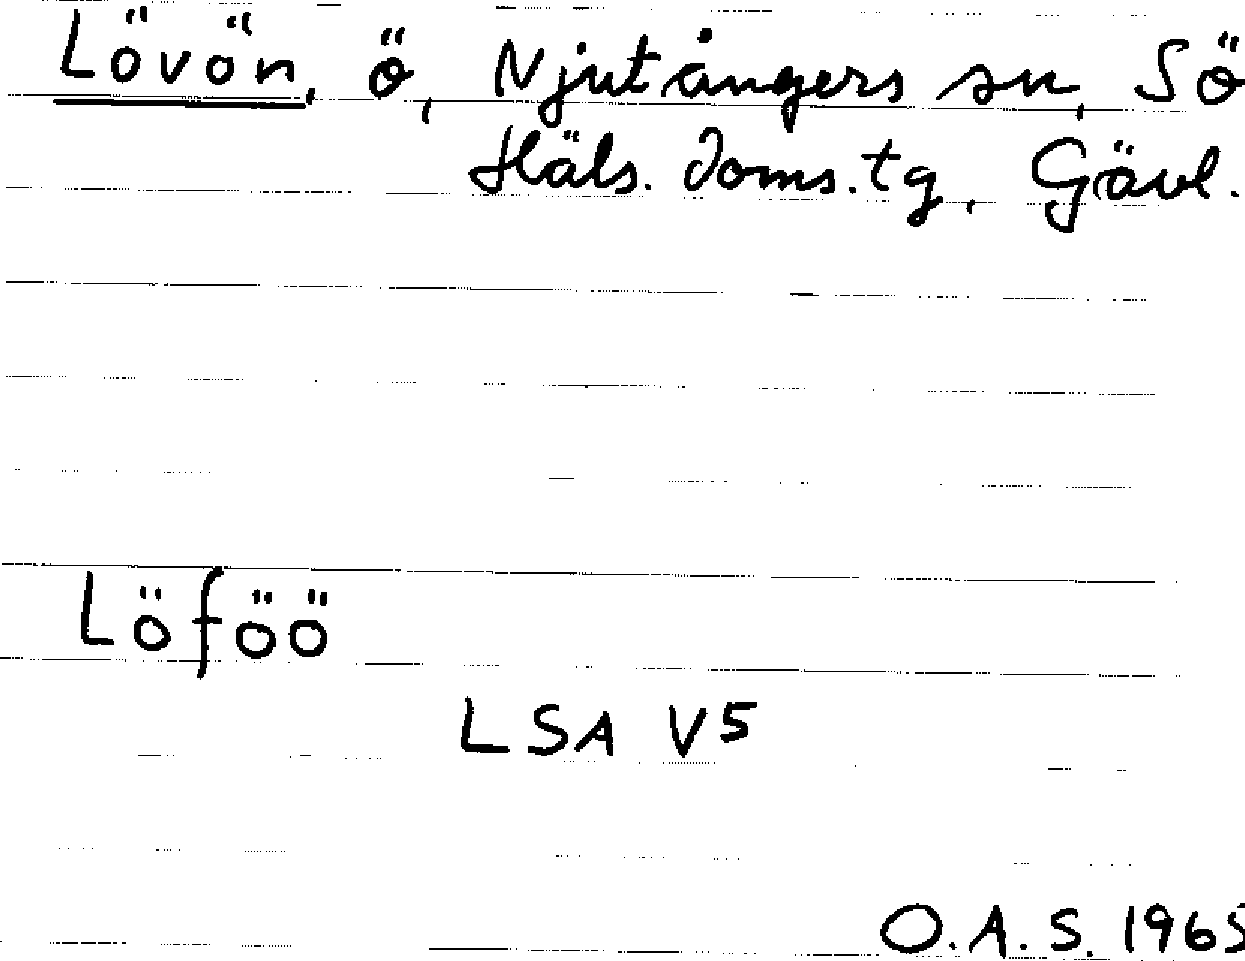 Lövön, ö, Njutångers sn, Sö
Häls. doms.tg, Gävl.
Löföö
LSA V5
O.A.S. 1965